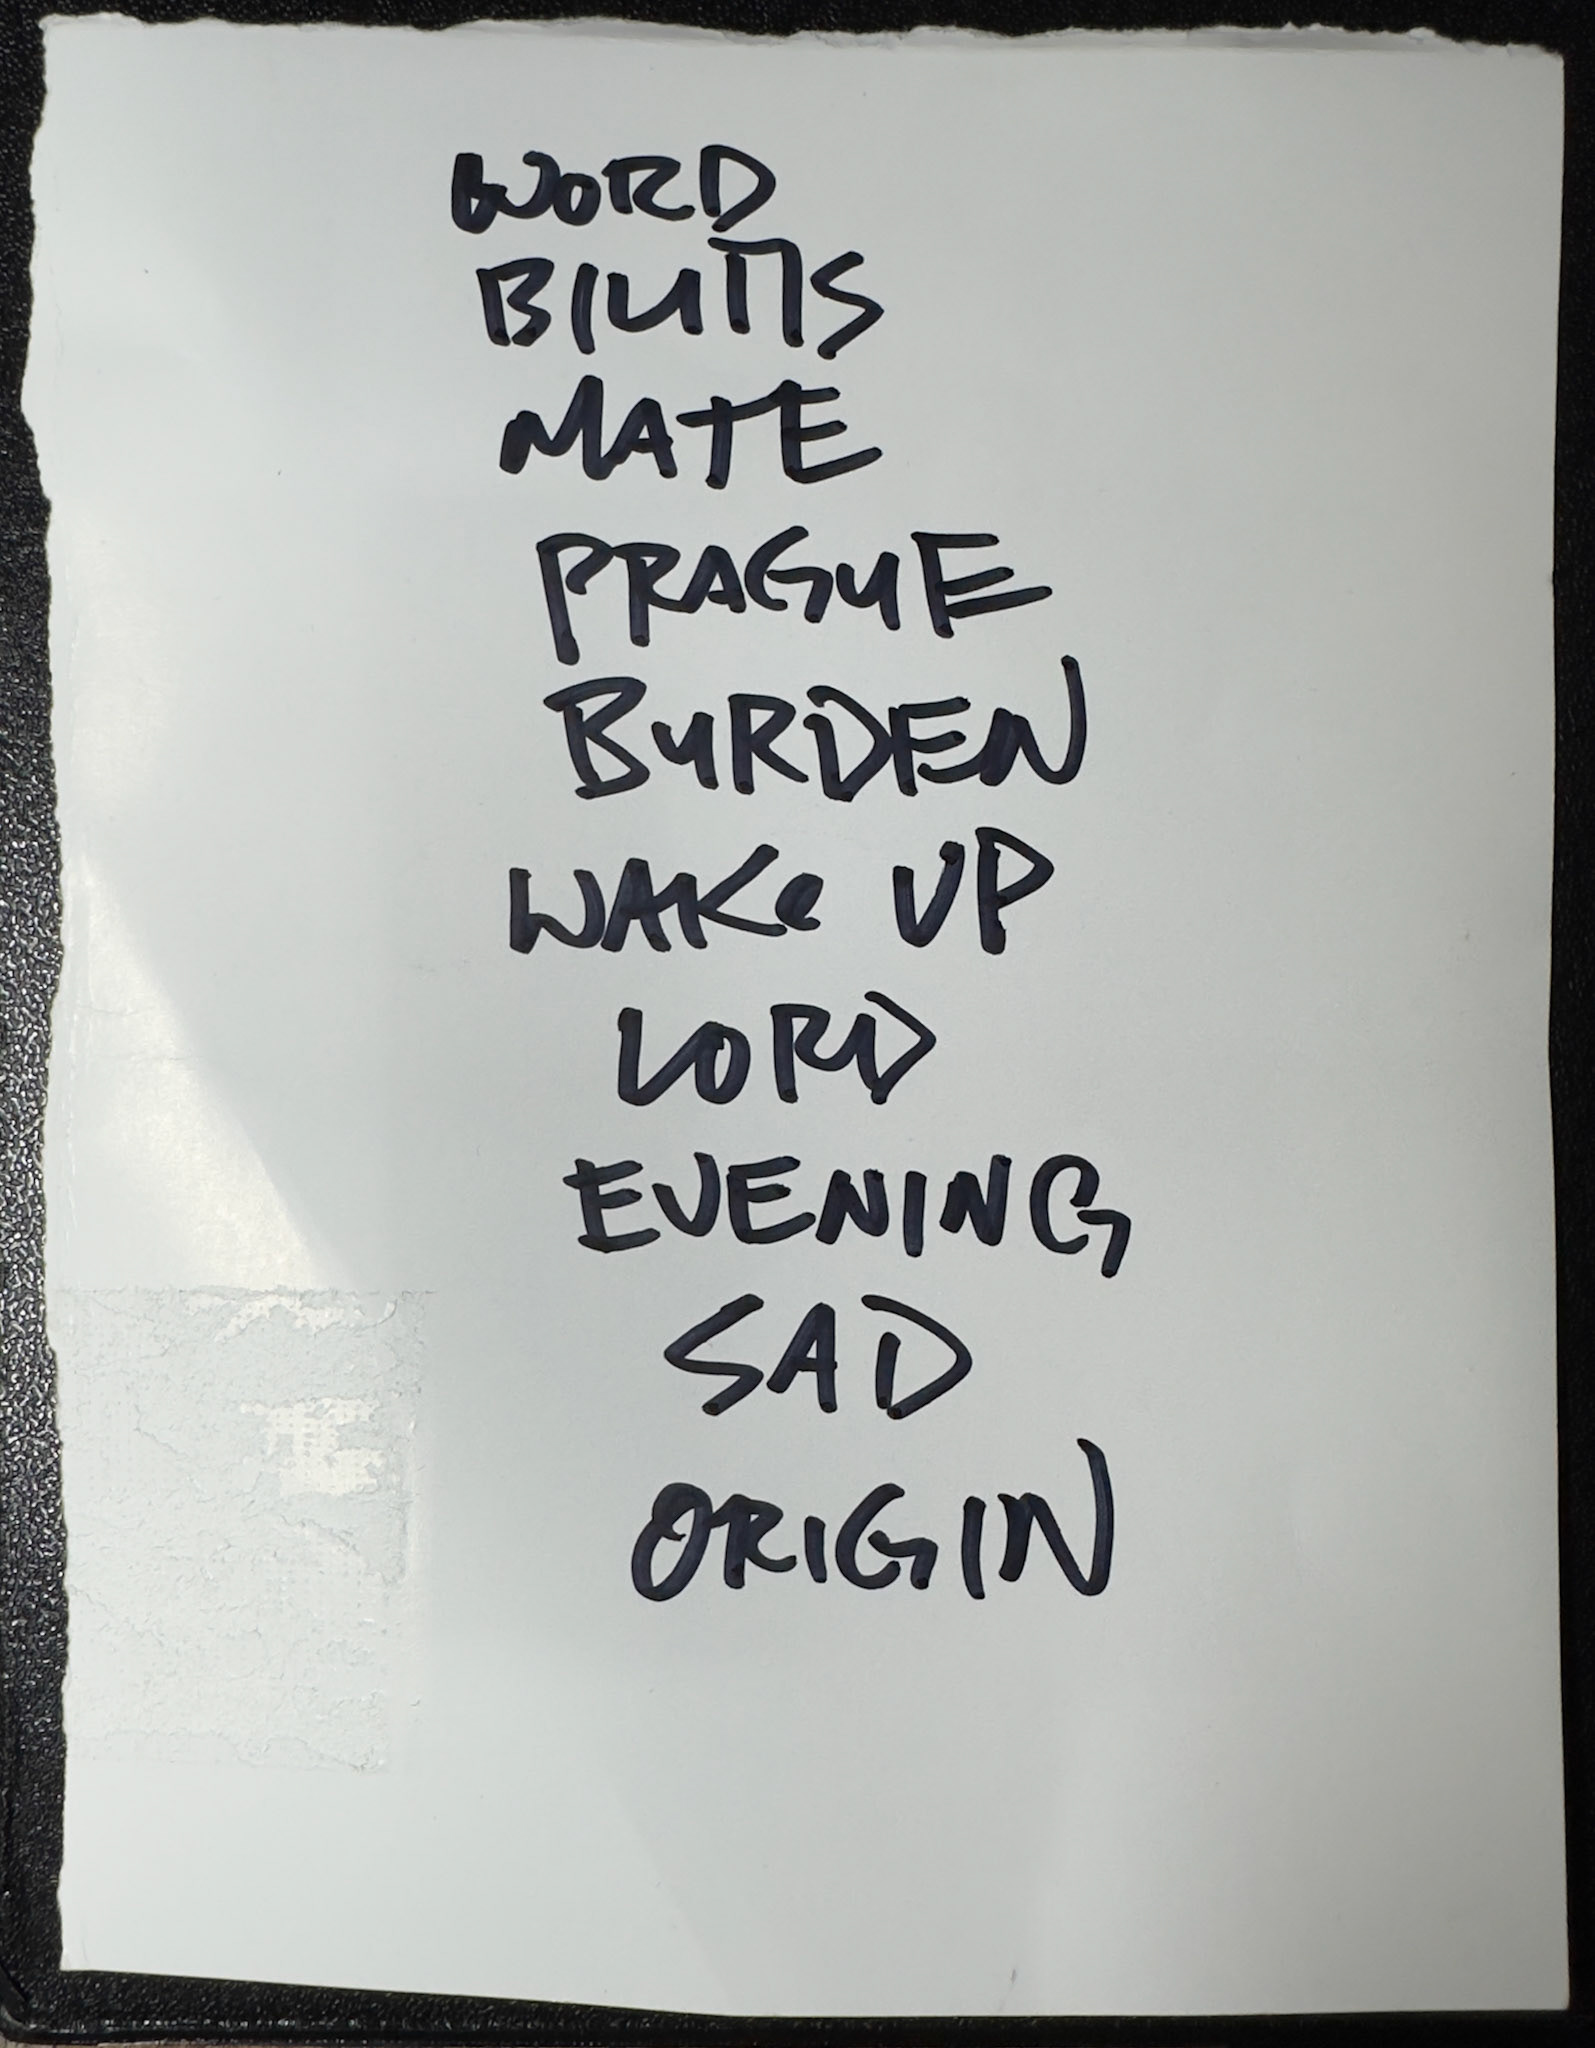 WORD
MATE
PRAGUE
BURDEN
WAKe UP
LORD
EVENING
SAD
ORIGIN